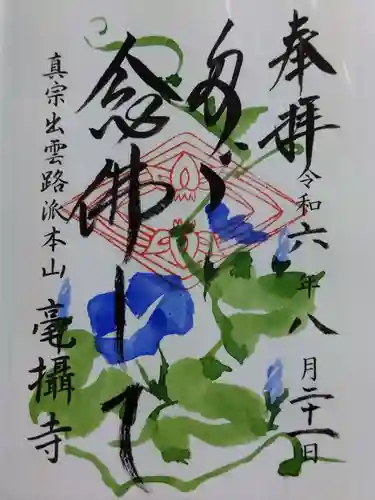 奉拝
令和六年八月二十一日
たゞ
念佛して
真宗出雲路派本山
毫攝寺